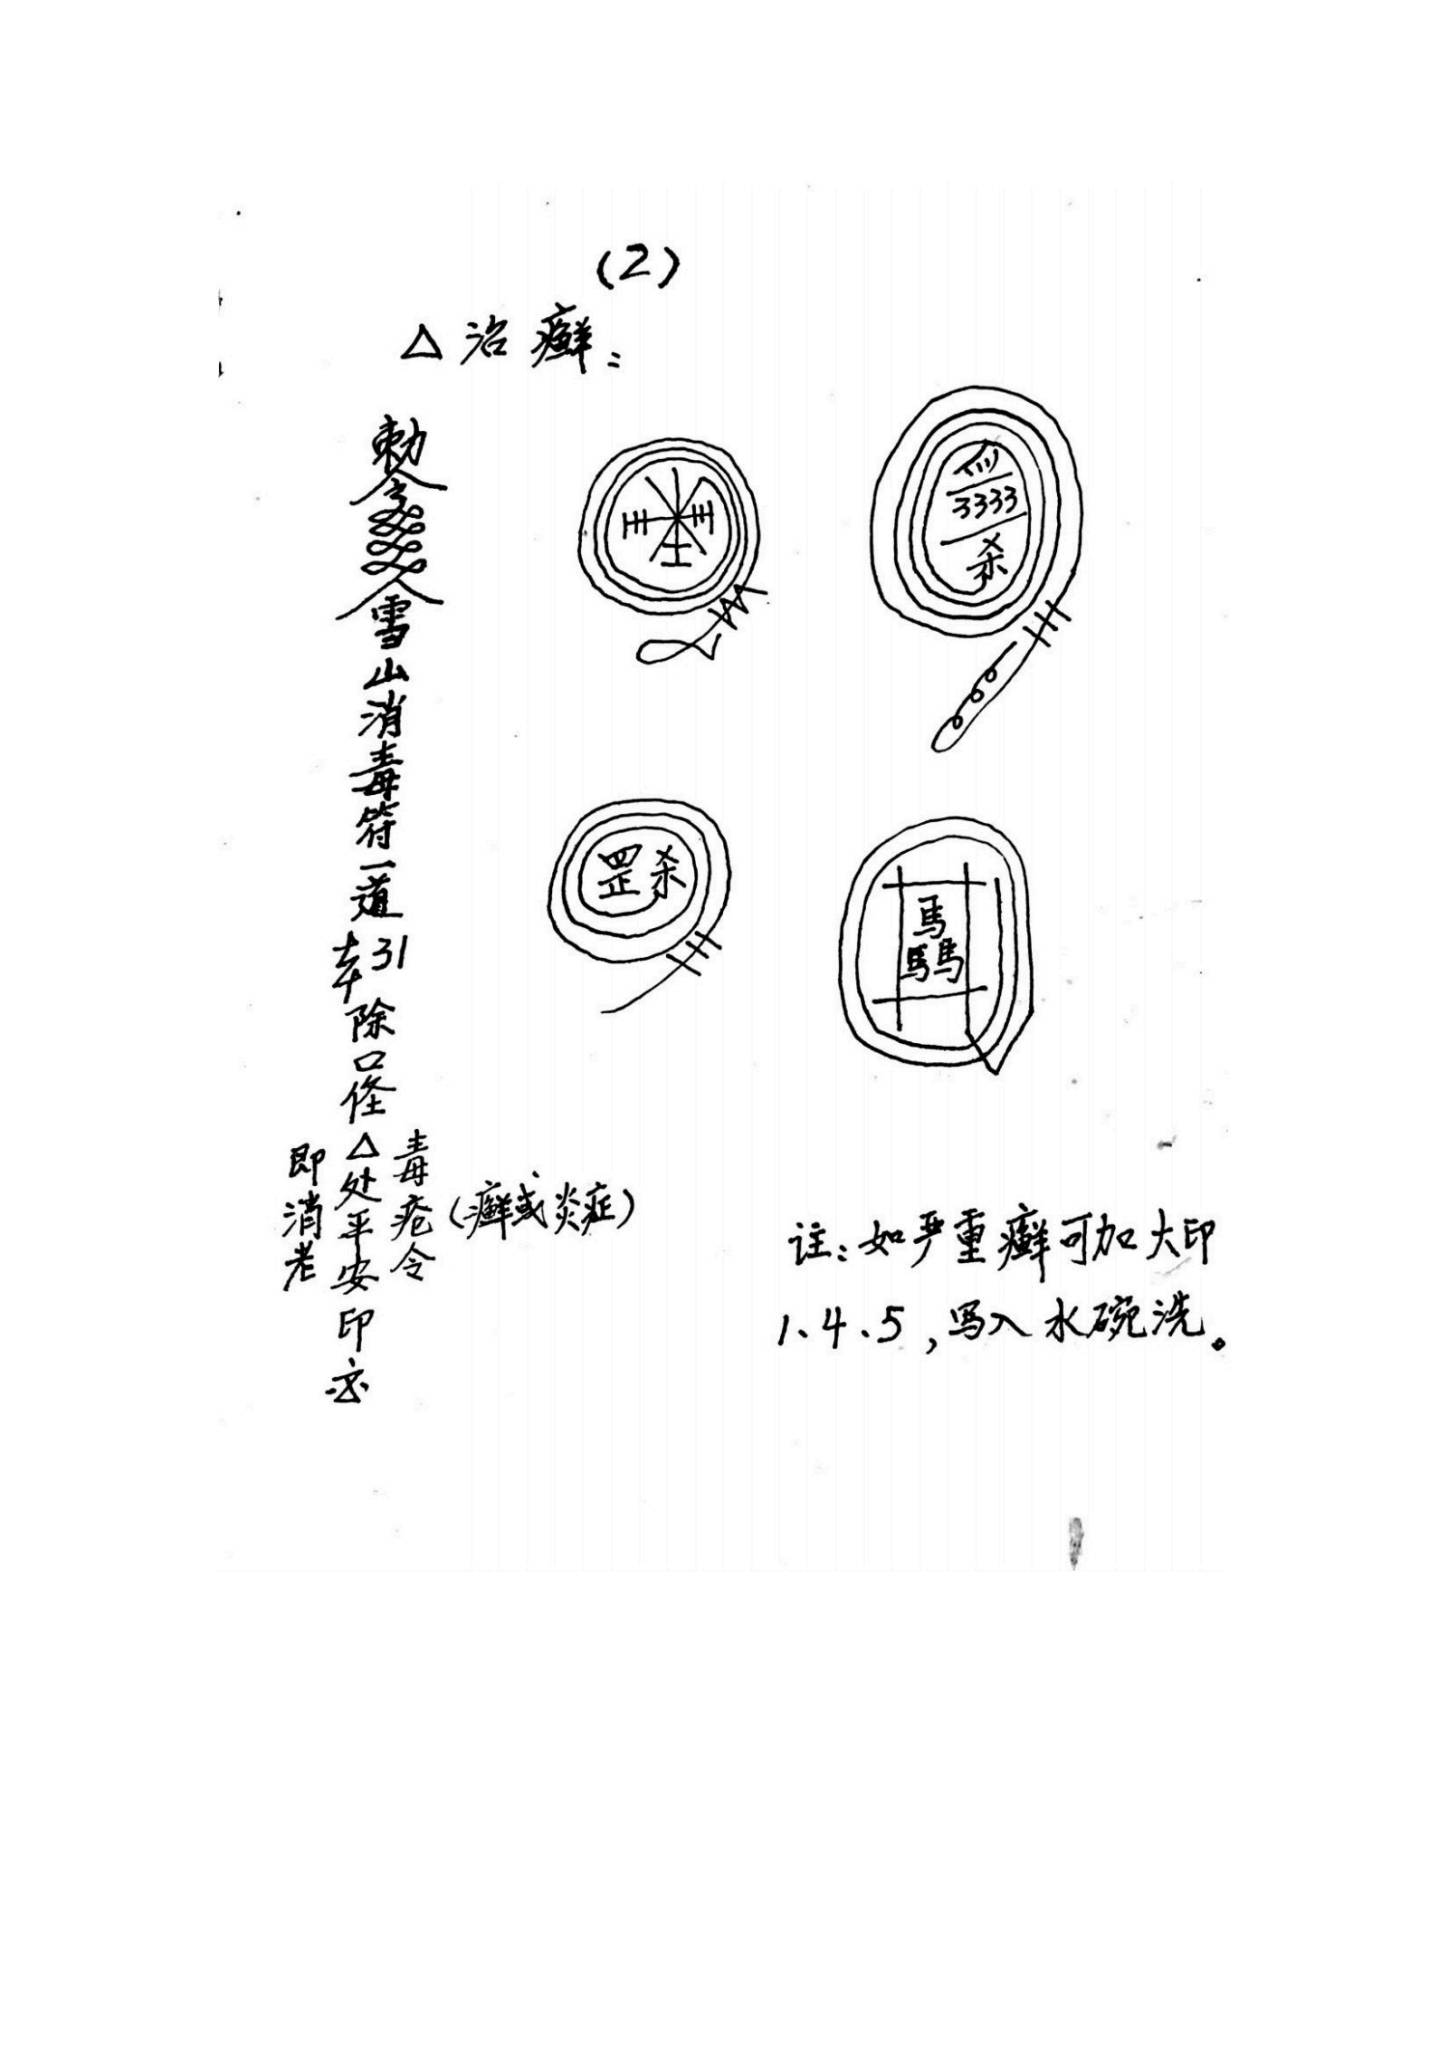 (2)
△治癣：
勅令雪山消毒符一道
奉31
除口怪
△处平安印
毒疮令
即消老
(癣或炎症)
3333
杀
罡杀
馬
馬馬
註：如严重癣可加大印
1、4、5，写入水碗洗。